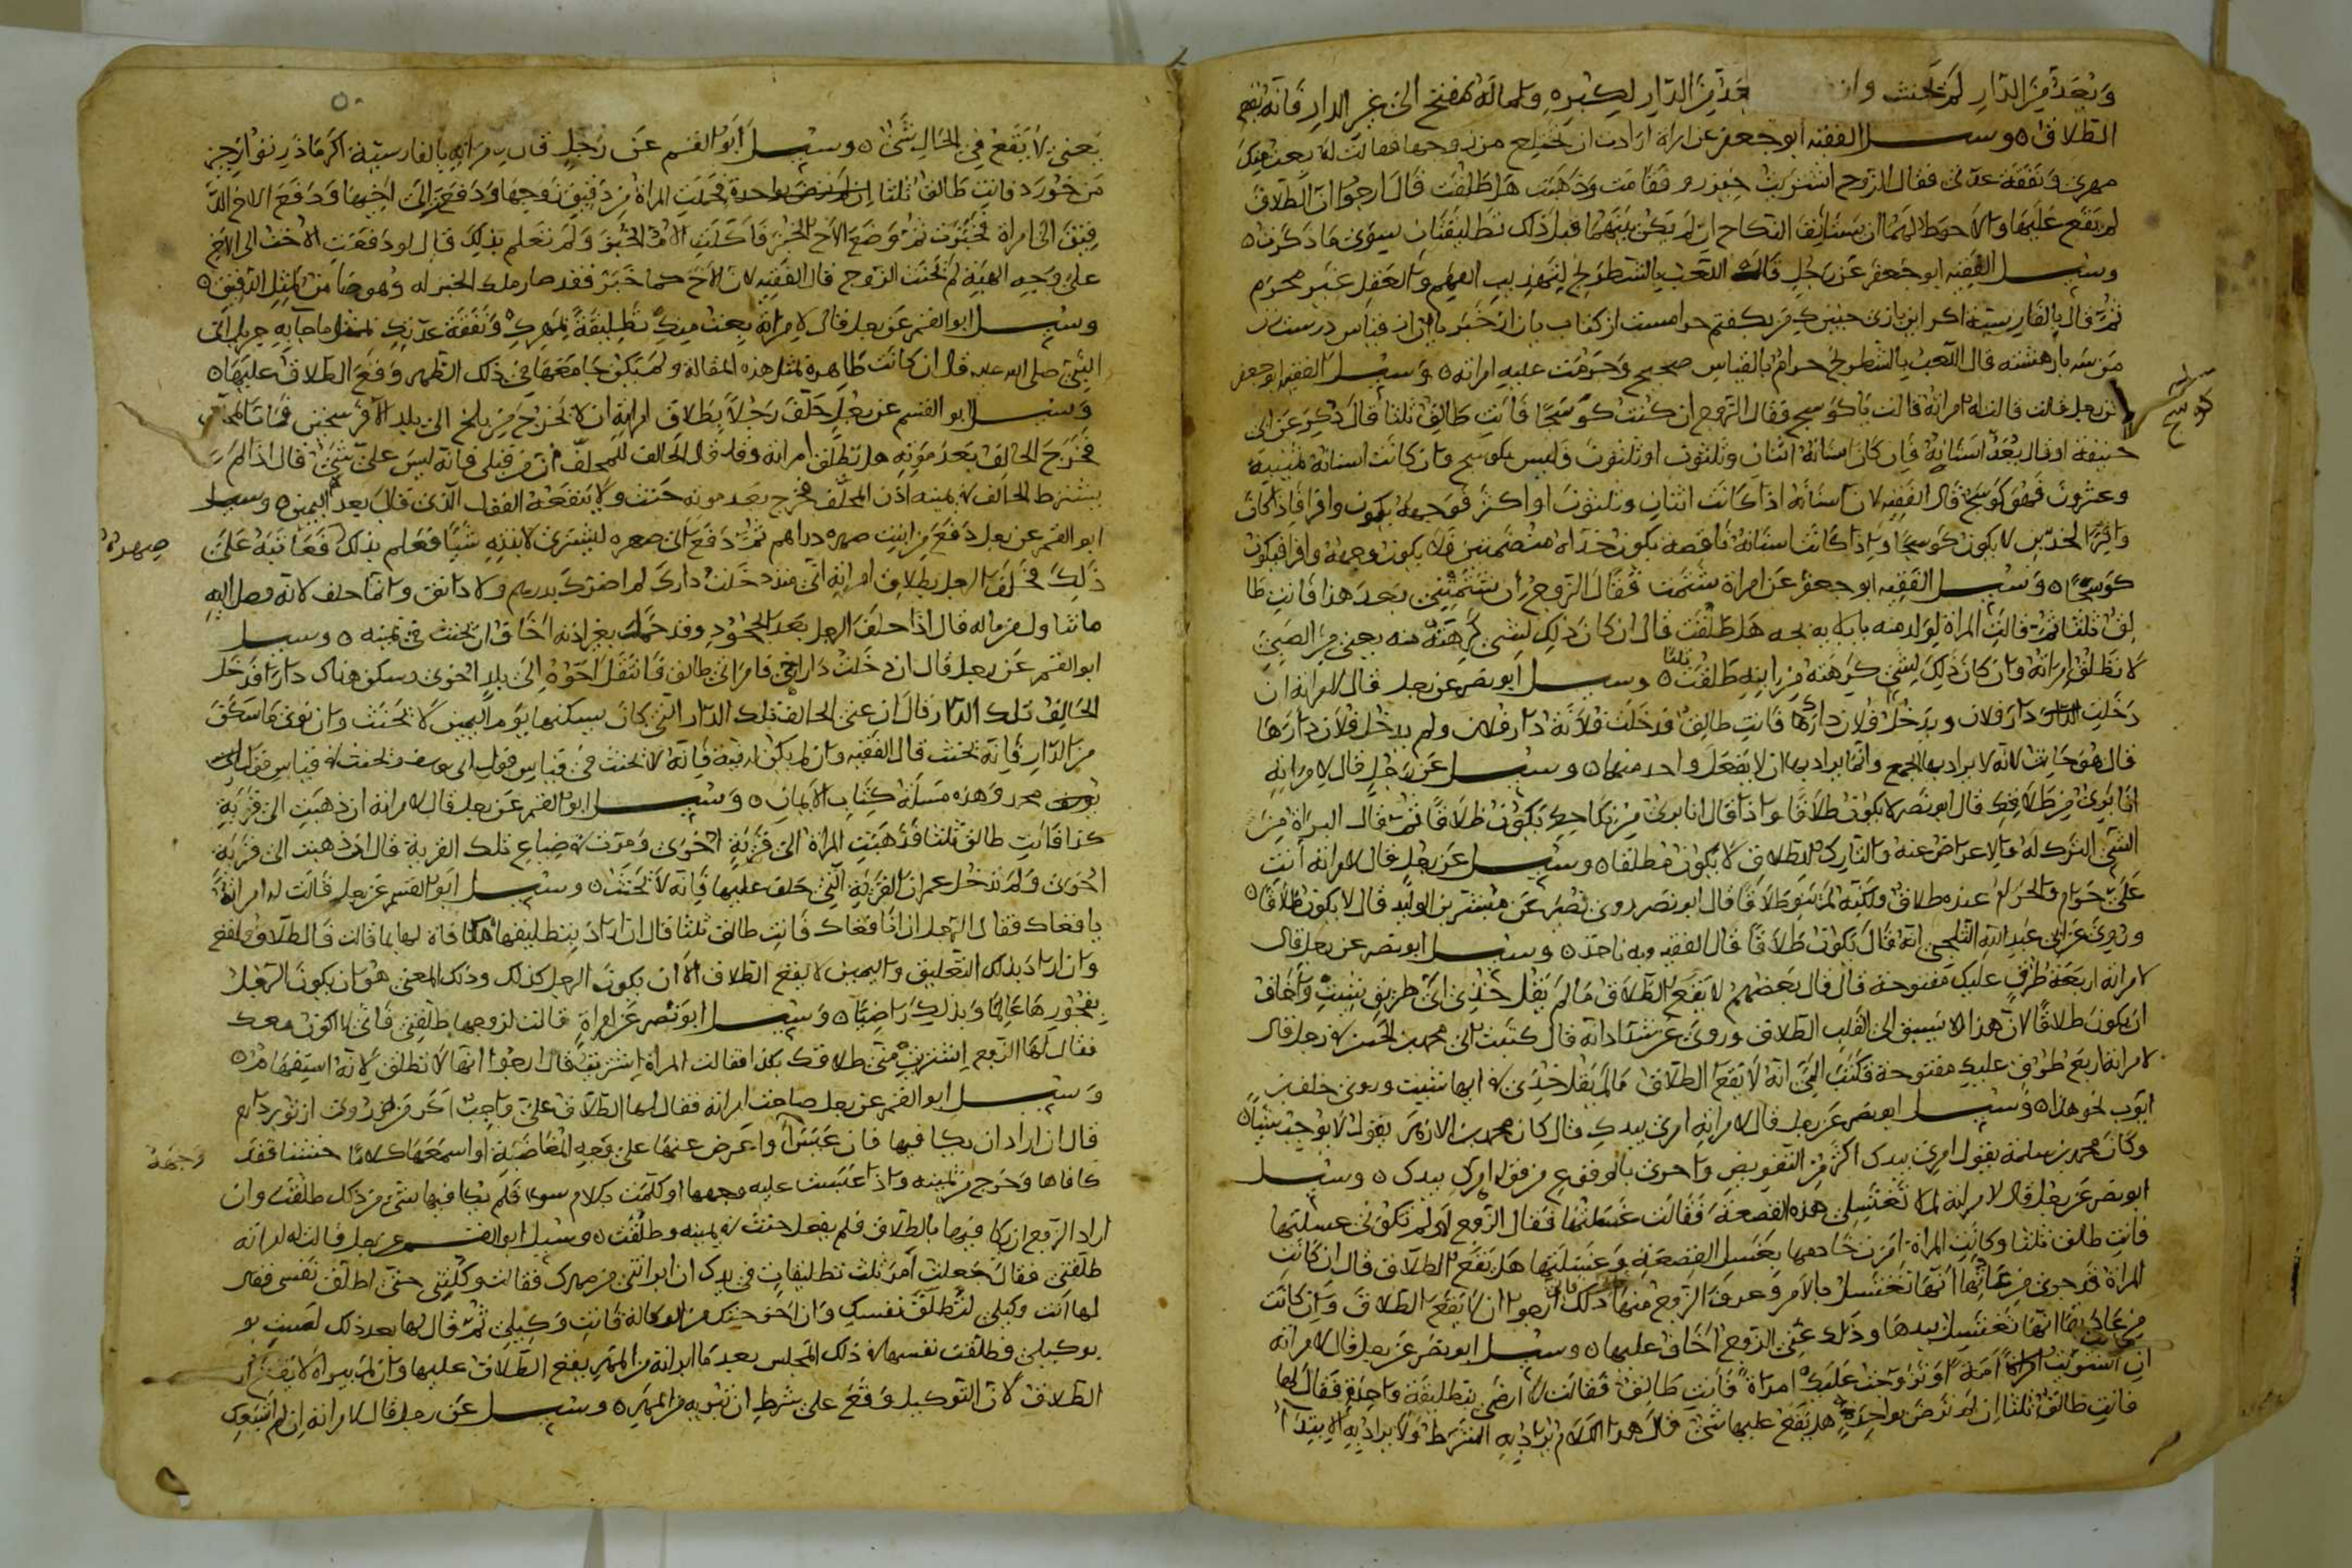 ويعد من الدار لم يحنث وان يعد من الدار لكبره وله مفتح الى غير الدار فانه يقع
الطلاق ه وسيل الفقيه ابو جعفر عن امراة ارادت ان تختلع من زوجها فقالت له بعت منك
مهري ونفقة عدتي فقال الزوج اشتريت فقامت وذهبت هل طلقت قال ارجوا ان الطلاق
لم يقع عليها والاحوط لهما ان يستانفا النكاح ان لم يكن بينهما قبل ذلك تطليقتان سوى ما ذكرت ه
وسيل الفقيه ابو جعفر عن رجل قال اللعب بالشطرنج لتهذيب الفهم والعقل غير محرم
ثم قال بالفارسية اكر اين بازى حرامست از كتاب يا از خبر يا از قياس درست
قال اللعب بالشطرنج حرام بالقياس صحيح وحرمت عليه امراته ه وسيل الفقيه ابو جعفر
عن رجل قالت له امراته يا كوسج فقال الزوج ان كنت كوسجا فانت طالق ثلثا قال ذكر عن ابى
حنيفة انه قال يعد اسنانه فان كان اسنانه اثنان وثلثون فليس بكوسج وان كانت اسنانه ثمنية
وعشرون فهو كوسج قال الفقيه لان اسنانه اذا كانت اثنان وثلثون او اكثر فوجهه يكون وافرا فاذا كان
وافر الخدين لا يكون كوسجا واذا كانت اسنانه ناقصة يكون خداه منضمتين فلا يكون وجهه وافرا فيكون
كوسجا ه وسيل الفقيه ابو جعفر عن امراة شتمت فقال الزوج ان شتمتيني بعد هذا فانت طا
لق ثلثا ثم قالت المراة لولد منه هل طلقت قال ان كان ذلك لشى كرهته منه يعني من الصبي
لا تطلق امراته وان كان ذلك لشى كرهته من ابيه طلقت ثلثا ه وسيل ابو نصر عن رجل قال لامراته ان
دخلت دار فلان ويدخل فلان دارك فانت طالق فدخلت فلانة دار فلان ولم يدخل فلان دارها
قال هو حانث لانه لا يراد به الجمع وانما يراد به ان لا يفعل واحد منهما ه وسيل عن رجل قال لامراته
انا بري من طلاقك قال ابو نصر لا يكون طلاقا واذا قال انا بري من نكاحك يكون طلاقا ثم قال البراة من
الشي الترك له والاعراض عنه والتارك للطلاق لا يكون مطلقا ه وسيل عن رجل قال لامراته انت
على حرام والحرام عنده طلاق ولكنه لم ينو طلاقا قال ابو نصر روى نصير عن بشر بن الوليد قال لا يكون طلاقا ه
وروى عن ابى عبد الله الثلجي انه قال يكون طلاقا قال الفقيه وبه ناخذ ه وسيل ابو نصر عن رجل قال
لامراته اربعة طرق عليك مفتوحة قال قال بعضهم لا يقع الطلاق ما لم يقل خذي اى طريق شيت واخاف
ان يكون طلاقا لان هذا لا يسبق الى القلب الطلاق وروى عن شداد انه قال كتبت الى محمد بن الحسن في رجل قال
لامراته اربع طرق عليك مفتوحة فكتب الى انه لا يقع الطلاق ما لم يقل خذي في ايها شيت وروى خلف بن
ايوب نحو هذا ه وسيل ابو نصر عن رجل قال لامراته امرى بيدك قال كان محمد بن الازهر يقول لا يوجب شيا ه
وكان محمد بن سلمة يقول امري بيدك اكثر من التفويض واحرى بالوقوع من قوله امرك بيدك ه وسيل
ابو نصر عن رجل قال لامراته لم لا تغتسلي هذه القصعة فقالت غسلتها فقال الزوج ان لم تكوني غسلتها
فانت طالق ثلثا وكانت المراة امرت خادمها بغسل القصعة وغسلتها هل يقع الطلاق قال ان كانت
المراة قد جرى من عادتها انها تغتسل بالامر وعرف الزوج منها ذلك ارجوا ان لا يقع الطلاق وان كانت
من عادتها انها تغتسل بيدها وذلك عنى الزوج اخاف عليها ه وسيل ابو نصر عن رجل قال لامراته
ان اشتريت امة او تزوجت عليك امراة فانت طالق فقالت لا ارضى بتطليقة واحدة فقال لها
فانت طالق ثلثا ان لم ترض بواحدة هل يقع عليها شى قال هذا الكلام يراد به الشرط ولا يراد به الابتدا
كوسج
٥٠
يعني لا يقع في الحال شى ه وسيل ابو القسم عن رجل قال لامراته بالفارسية اكر مادر تو از جيز
من خورد فانت طالق ثلثا فحملت المراة من دقيق زوجها ودفعت الى اخيها ودفع الاخ الد
قيق الى امراة فخبزت ثم وضع الاخ الخبز فاكلت الام الخبز ولم تعلم بذلك قال لو دفعت الاخت الى الاخ
على وجه الهبة لم يحنث الزوج قال الفقيه لان الاخ كما خبز فقد صار ملك الخبز له وهو ضامن لمثل الدقيق ه
وسيل ابو القسم عن رجل قال لامراته بعت منك تطليقة بمهرك ونفقة عدتك بمثل ما جا به جبريل الى
النبى صلى الله عليه قال ان كانت طاهرة لمثل هذه المقالة ولم يكن جامعها في ذلك الطهر وقع الطلاق عليها ه
وسيل ابو القسم عن رجل حلف رجلا بطلاق امراته ان لا يخرج من بلخ الى بلد الا فمات المحلف
فخرج الحالف بعد موته هل تطلق امراته وقد قال الحالف للمحلف من قبلي فانه ليس على شى قال اذا لم
يشترط الحالف في يمينه اذن المحلف فخرج بعد موته حنث ولا ينفعه القول الذي قال بعد اليمين ه وسيل
ابو القسم عن رجل دفع من ابنت صهره دراهم ثم دفع الى صهره ليشتري لابنته شيا فعلم بذلك فعاتبه على
ذلك فحلف الرجل بطلاق امراته اني منذ دخلت دارك لم اضرك بدرهم ولا دانق وانما حلف لانه وصل اليه
ما تناول من ماله قال اذا حلف الرجل بعد الجحود وقد حملت بغير اذنه اخاف ان يحنث في يمينه ه وسيل
ابو القسم عن رجل قال ان دخلت دار اخي فامراتي طالق فانتقل اخوه الى بلد اخرى وسكن هناك دارا فدخل
الحالف تلك الدار قال ان عنى الحالف تلك الدار التي كان يسكنها يوم اليمين لا يحنث وان نوى ما سكن
من الدار فانه يحنث قال الفقيه وان لم يكن له نية فانه لا يحنث في قياس قول ابى يوسف ويحنث في قياس قول
محمد وهذه مسالة كتاب الايمان ه وسيل ابو القسم عن رجل قال لامراته ان ذهبت الى قرية
كذا فانت طالق ثلثا فذهبت المراة الى قرية اخرى ومرت في ضياع تلك القرية قال ان ذهبت الى قرية
اخرى ولم تدخل عمران القرية التي حلف عليها فانه لا يحنث ه وسيل ابو القسم عن رجل قالت له امراته
يا قعاك فقال الرجل ان انا قعاك فانت طالق ثلثا قال ان اراد بتطليقها مكافاة لها بما قالت فالطلاق واقع
وان اراد بذلك التعليق واليمين لا يقع الطلاق الا ان يكون الرجل كذلك وذلك المعنى هو ان يكون الرجل
بفجورها عالما وبذلك راضيا ه وسيل ابو نصر عن امراة قالت لزوجها طلقني فاني لا اكون معك
فقال لها الزوج اشتريت مني طلاقك بكذا فقالت المراة اشتريت قال ارجوا انها لا تطلق لانه استفهام ه
وسيل ابو القسم عن رجل صاحت امراته فقال لها الطلاق على واجب اكر من
قال ان اراد ان يكافيها فان عبس واعرض عنها على وجه المغاضبة او اسمعها كلاما خشنا فقد
كافاها وخرج من يمينه واذا عبست عليه وجهها او كلمت بكلام سوء فلم يكافيها بشى من ذلك طلقت وان
اراد الزوج ان يكافيها بالطلاق فلم يفعل حنث في يمينه وطلقت ه وسيل ابو القسم عن رجل قالت له امراته
طلقني فقال جعلت امر ثلث تطليقات في يدك ان ابراتني من مهرك فقالت وكلني حتى اطلق نفسي فقال
لها انت وكيلي لتطلق نفسك فانت وكيلي ثم قال لها بعد ذلك لست
بوكيلي فطلقت نفسها في ذلك المجلس بعد ما ابراته من المهر يقع الطلاق عليها وان لم تبراه لا يقع
الطلاق لان التوكيل وقع على شرط ان تبريه من المهر ه وسيل عن رجل قال لامراته ان لم
صهره
وجهه